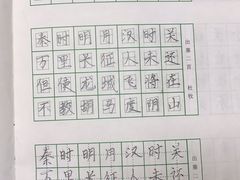 秦时明月汉时关
万里长征人未还
但使龙城飞将在
不教胡马度阴山
出塞二首 杜牧
秦时明月汉时关
万里长征人未还
出塞二